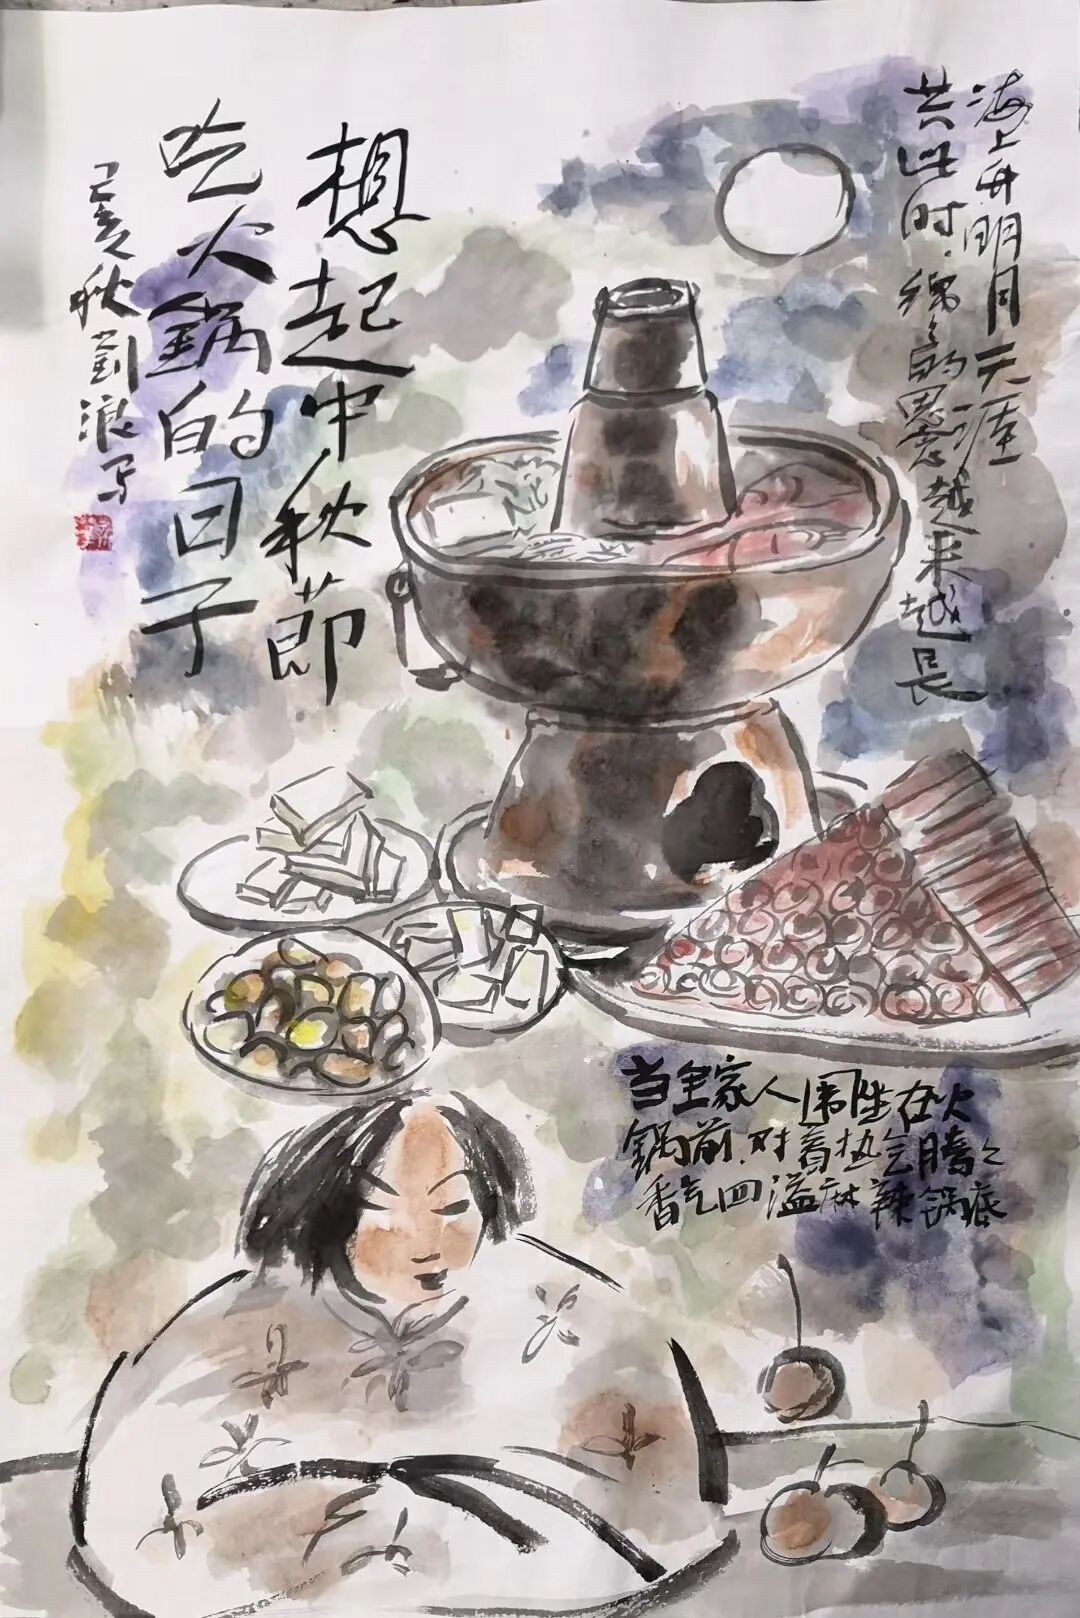 海上升明月天涯
共此时.绵々的思念越来越长
想起中秋节
吃火锅的日子
己亥秋劉浪写
当全家人围坐在火
锅前.对着热气腾々
香气四溢麻辣锅底